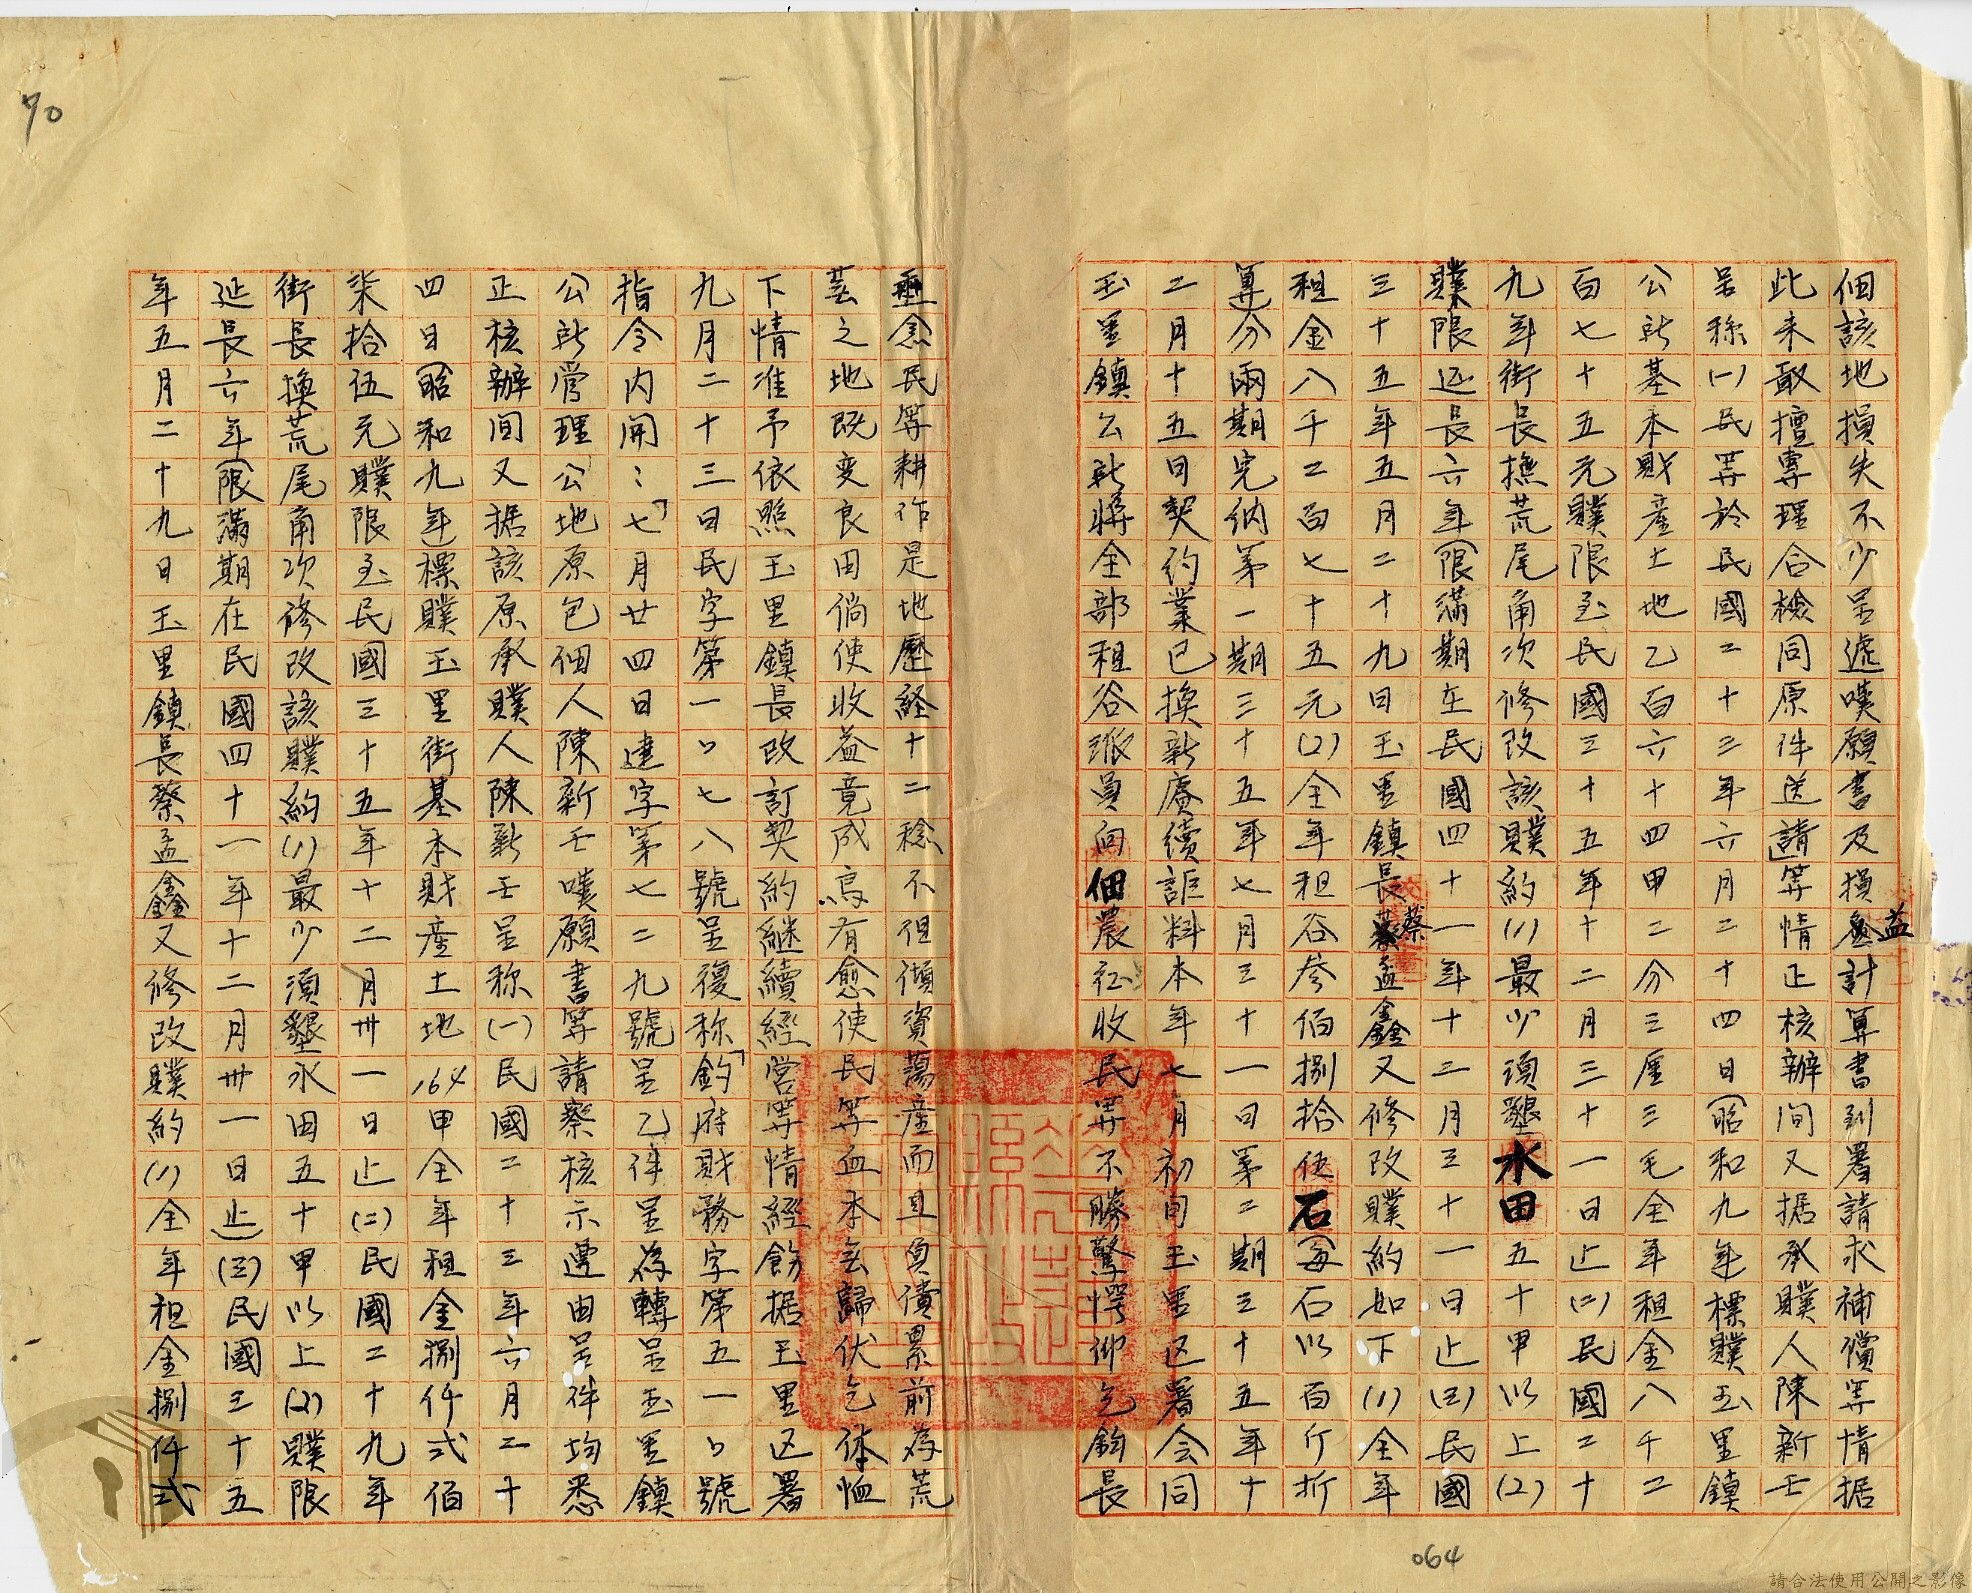 70
佃該地損失不少呈遞嘆願書及損益計算書到署請求補償等情据
此未敢擅專理合檢同原件送請等情正核辦间又据承贌人陳新壬
呈称(一)民等於民國二十三年六月二十四日(昭和九年標贌玉里鎮
公所基本財產土地乙百六十四甲二分三厘三毛全年租金八千二
百七十五元贌限至民國三十五年十二月三十一日止(二)民國二十
九年街長撫荒尾甬次修改該贌約(1)最少須墾水田五十甲以上(2)
贌限延長六年(限滿期在民國四十一年十二月三十一日止(三)民國
三十五年五月二十九日玉里鎮長蔡孟鑫又修改贌約如下(1)全年
租金八千二百七十五元(2)全年租谷参佰捌拾伍石(每石以百斤折
算分兩期完納第一期三十五年七月三十一日第二期三十五年十
二月十五日契約業已換新賡續詎料本年七月初旬玉里区署会同
玉里鎮公所將全部租谷派員向佃農征收民等不勝驚愕仰乞鈞長
垂念民等耕作是地歷経十二稔不但傾資蕩產而且負債累前為荒
蕪之地既变良田倘使收益竟成烏有愈使民等血本無歸伏乞体恤
下情准予依照玉里鎮長改訂契約継續經营等情經飭据玉里区署
九月二十三日民字第一〇七八號呈復称「鈞府財務字第五一〇號
指令内開：「七月廿四日建字第七二九號呈乙件呈為轉呈玉里鎮
公所管理公地原包佃人陳新壬嘆願書等請察核示遵由呈件均悉
正核辦间又据該原承贌人陳新壬呈称(一)民國二十三年六月二十
四日(昭和九年標贌玉里街基本財產土地164甲全年租金捌仟弍佰
柒拾伍元贌限至民國三十五年十二月卅一日止(二)民國二十九年
街長換荒尾甬次修改該贌約(1)最少須墾水田五十甲以上(2)贌限
延長六年(限滿期在民國四十一年十二月卅一日止(三)民國三十五
年五月二十九日玉里鎮長蔡孟鑫又修改贌約(1)全年租金捌仟弍
064
請合法使用公開之影像